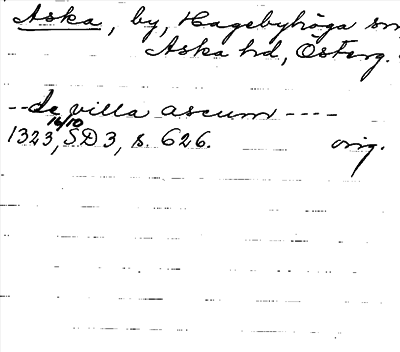 Aska, by, Hagebyhöga sn
Aska hd, Österg.
-- de villa ascum ----
16/10
1323, SD 3, s. 626. orig.